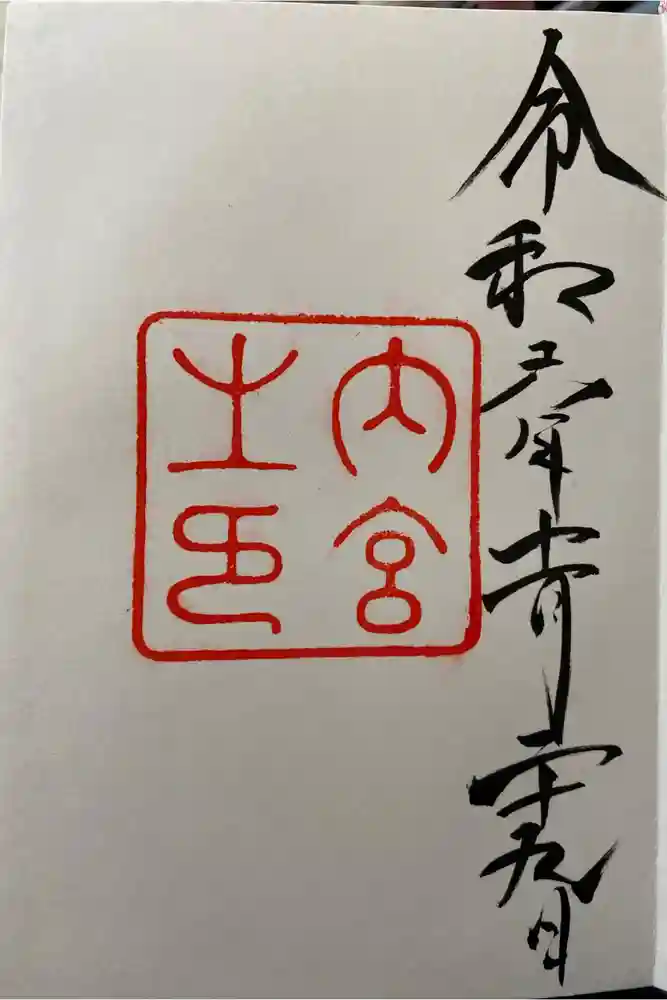 令和六年十一月二十九日
内宮
之印